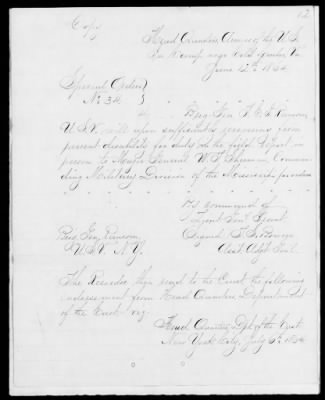 12
Copy
Head Quarters Armies of the U.S.
In Camp near Cold Harbor, Va
June 12th 1864
Special Orders
No. 34
Brig Gen T. E. G. Ransom
U.S.V. will upon sufficiently recovering from
present disability for duty in the field report in
person to Major General W. T. Sherman Comman-
ding Military Division of the Mississippi for orders
By command of
Lieut Gen'l Grant
Signed T. S. Bowers
Asst Adjt Genl
Brig Gen Ransom
U.S.V. N.Y.
The Recorder then read to the Court the following
endorsement from Head Quarters Department
of the East viz.
Head Quarters Dept of the East
New York City, July 5th 1864